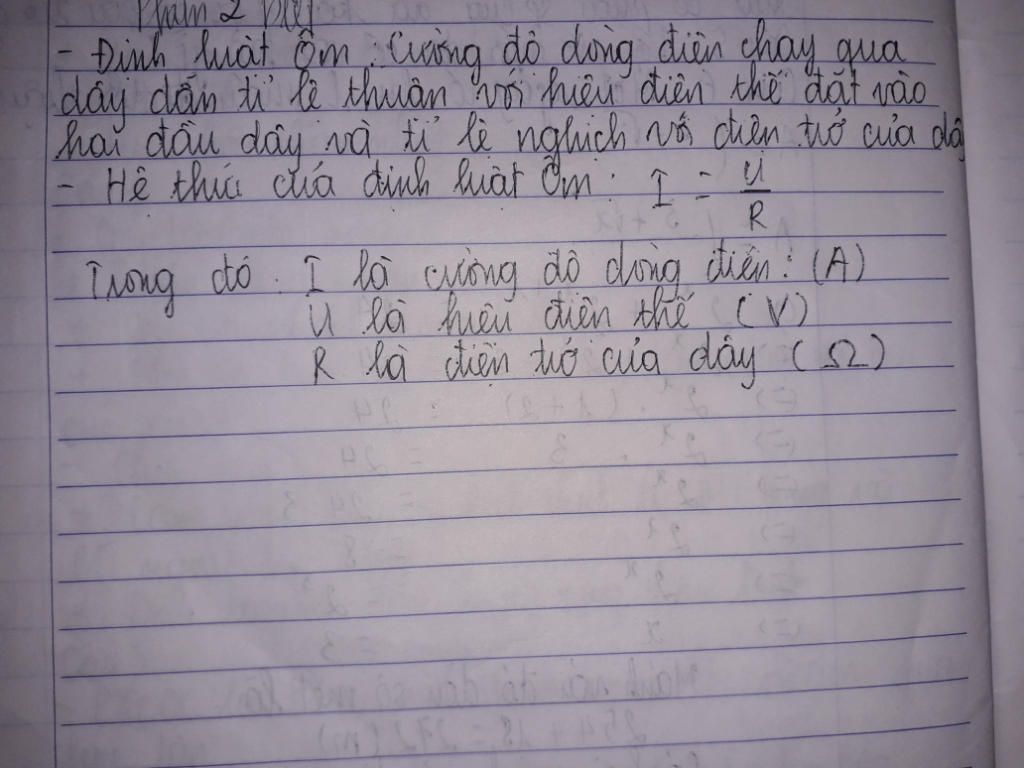 Phần 2
- Định luật Ôm: Cường độ dòng điện chạy qua
dây dẫn tỉ lệ thuận với hiệu điện thế đặt vào
hai đầu dây và tỉ lệ nghịch với điện trở của dây
- Hệ thức của định luật Ôm: I = U/R
Trong đó: I là cường độ dòng điện: (A)
U là hiệu điện thế (V)
R là điện trở của dây (Ω)